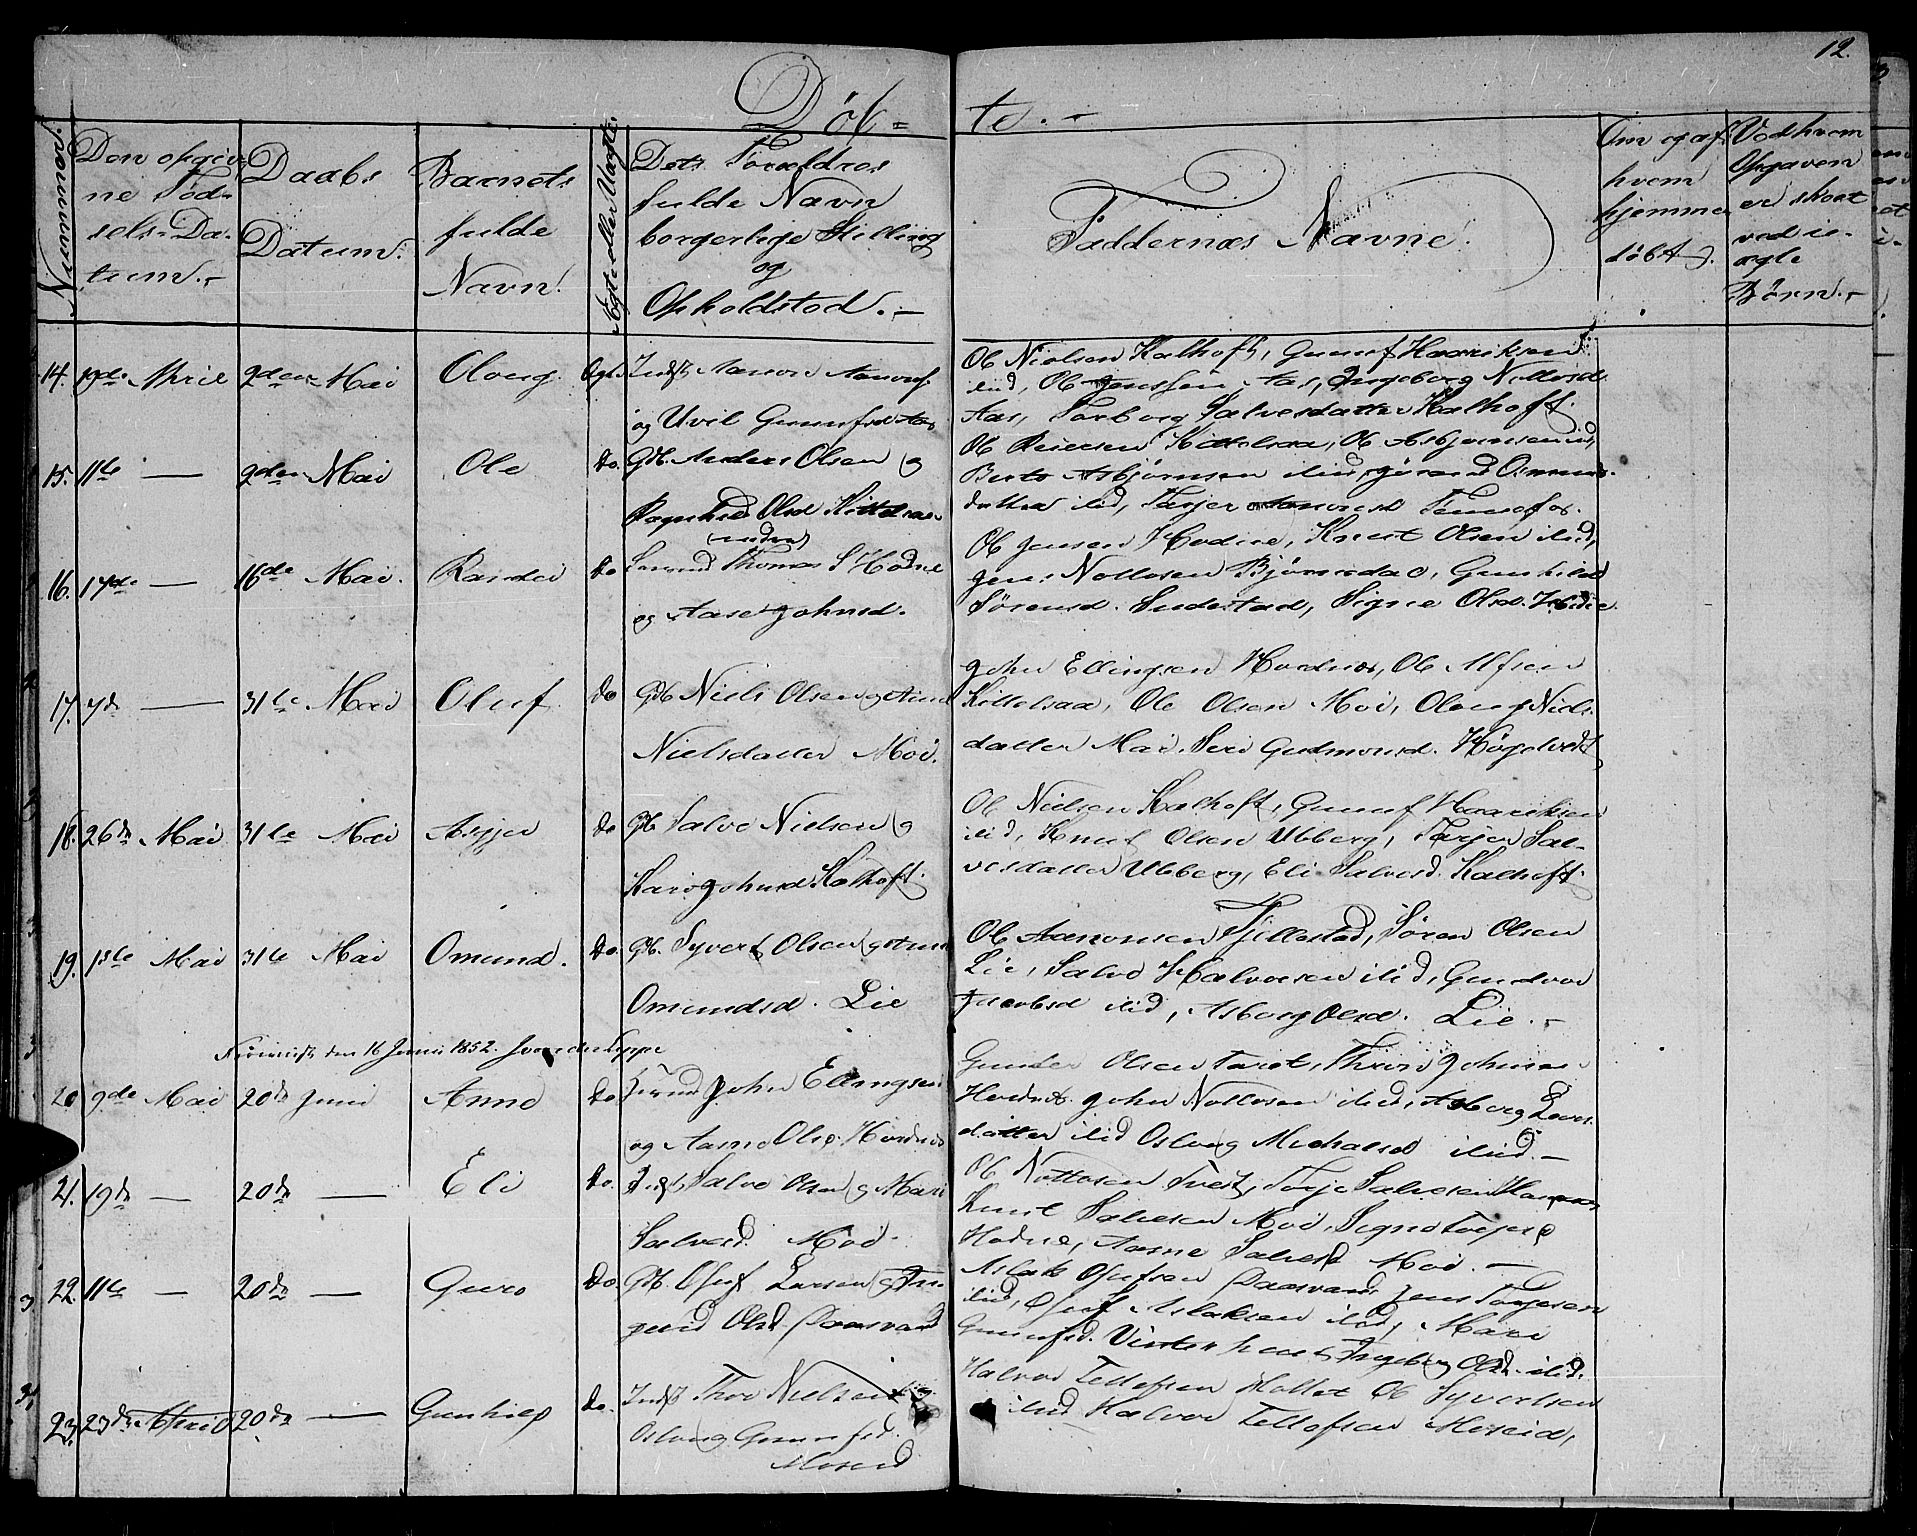 12.
Døb= te.-
Nummer.
Den opgiv=
ne Fød=
sels-Da=
tum.-
Daabs
Datum.
Barnets
fulde
Navn.
Ægte eller Uægte.
Dets Forældres
fulde Navn
borgerlige Stilling
og
Opholdsted.-
Faddernæs Navne.
Om og af
hvem
hjemme
døbt.
Ved hvem
Opgaven
er skeet
ved u-
ægte
Børn.-
14. April 9den Mai Oloug Ægt. Indst Aanon Aanonss.
og Uvil Gunufsd Aas
Ob Nielsen Kalhoft, Gunuf Haaviksen
ibid, Ob Jenssen Aas, Ingeborg Nottosd
Aas, Torborg Salvesdatter Kalhoft.
15. 11te — 9den Mai Ole Do. Gb. Anders Olsen og
Ragnhild Olsd Kittelsaa
Ob Reiersen Kittelsaa, Ob Asbjørnsen ibid,
Berte Asbjørnsen ibid, Gorand Osmunds
datter ibid, Tarjer Aanonsd
(nedre)
16. 17de — 16de Mai. Do Thomas S Hodne
og Aase Johnsd.
Ob Jensen Hodne, Knut Olsen ibid,
Jens Nottosen Bjørnsdal, Gunhild
Sørensd. Sudestad, Signe Olsd. Hodne
17. 7de — 31te Mai Oluf Do Gb. Niels Olsen og
Nielsdatter Moi.
John Ellingsen Hordnæs, Ob Alfsen
Kittelsaa, Ole Olsen Moi, Oloug Niels
datter Moi, Seri Gudmunsd. Høgelvedt
18. 26de Mai 31te Mai Asgjer Do Gb. Salve Nielsen og
Kari Johnsd Kalhoft.
Ob Nielsen Kalhoft, Gunuf Haaviksen
ibid, Knut Olsen Ubberg, Tarjer Sal-
vesdatter Ubberg, Eli Salvesd. Kalhoft.
19. 13de Mai 31te Mai Omund. Do. Gb. Syvert Olsen og
Omundsd. Lie
Ob Aanonsen Tjillestad, Søren Olsen
Lie, Salve Halvorsen ibid, Gundvor
Jacobsd ibid, Asborg Olsd. Lie.-
den 16 Juni 1852.
20 9de Mai 20de Juni Anne Do John Ellingsen
og Aasne Olsd. Hordnæs
Gunder Olsen Johnsen
Hordnæs. John Nottosen ibid, Asborg
datter ibid Oslaug Michaelsd ibid.-
21. 19de — 20de — Eli Do. Indst, Salve Olsen og Mari
Salvesd. Moi.
Ob Nottosen Tveit, Torje Salvesen
Knut Salvesen Moi, Signe Torjesd
Hodne, Aasne Salvesd Moi.-
22. 11te — 20de — Guro Do. Gb. Ofuf Larsen og
Olsd. Paasvand
Aslak Ofufsen Paasvand, Jens Torjesen
ibid, Ofuf Aslaksen ibid, Mari
Gunufsd. Ingeborg Olsd ibid.
23. 23de April 20de — Gunhild Do. Indst Thor Nielsen og
Oslaug Gunufsd.
Moseid
Halvor Tellefsen Ob Syvertsen
ibid Halvor Tellefsen Moseid,